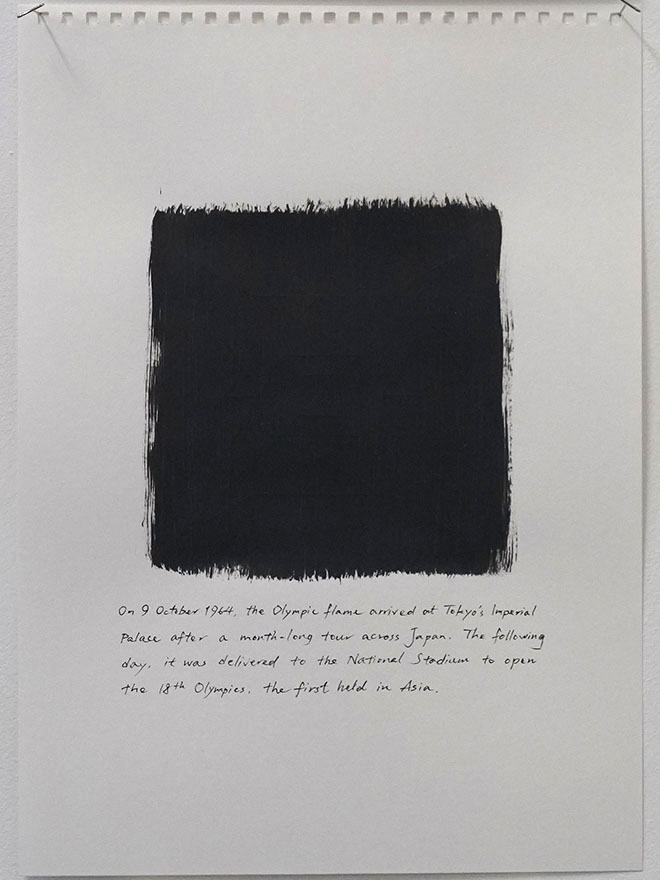 On 9 October 1964, the Olympic flame arrived at Tokyo's Imperial
Palace after a month-long tour across Japan. The following
day, it was delivered to the National Stadium to open
the 18th Olympics, the first held in Asia.